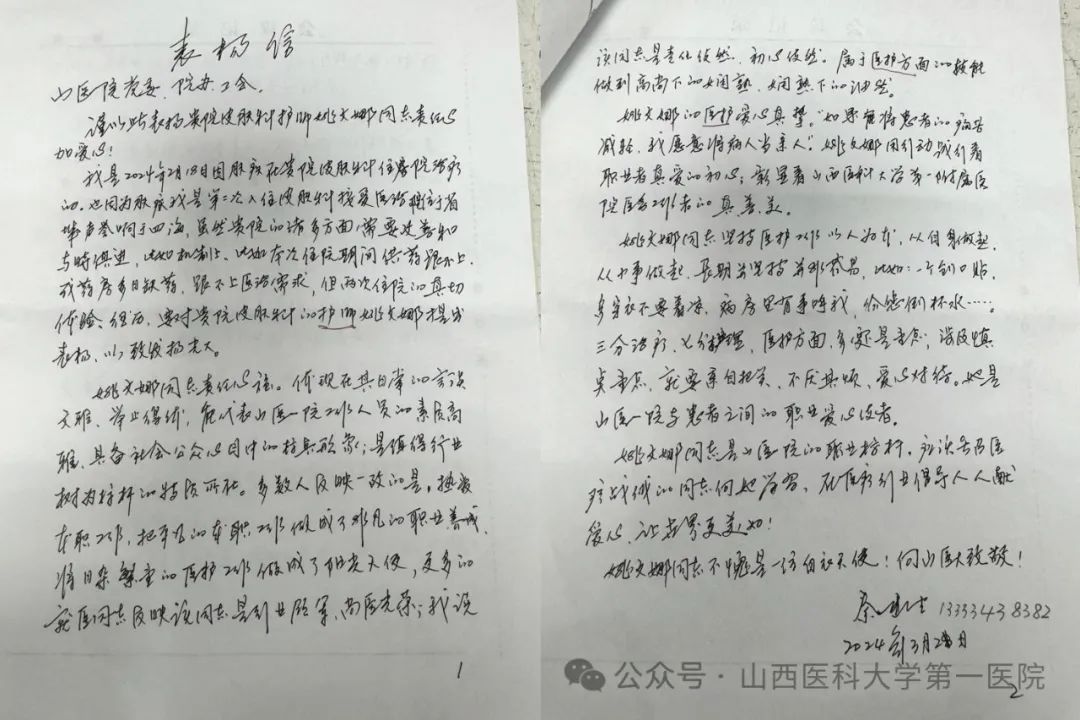 表扬信
山医院党委、院办、工会、
谨以此表扬贵院皮肤科护师姚文娜同志责任心
加爱心!
我是2024年2月18日因肤疾在贵院皮肤科住院治疗
的。也因为肤疾我是第二次入住皮肤科接受医治
声誉响于四海,虽然贵院的诸多方面需要改善和
与时俱进,比如机制上,比如本次住院期间供药跟不上,
或药房多日缺药,跟不上医治需求,但两次住院的真切
体验、经历,要对贵院皮肤科的护师姚文娜提出
表扬,以致发扬光大。
姚文娜同志责任心强。体现在其日常的言谈
文雅、举止得体;能代表山医一院工作人员的素质高
雅、具备社会公众心目中的形象;是值得行业
树为标杆的特质所在。多数人反映一致的是,热爱
本职工作,把平凡的本职工作做成了非凡的职业
将日杂繁重的医护工作做成了阳光天使,更多的
就医同志反映该同志是行业领军,尚医光荣;我说
1
该同志是老化依然、初心依然。属于医护方面的技能
做到高尚下的娴熟、娴熟下的
姚文娜的医护爱心真挚。“如果有将患者的病苦
减轻,我愿意将病人当亲人”。姚文娜用行动践行着
职业者真爱的初心;彰显着山西医科大学第一附属医
院医务工作者的真善美。
姚文娜同志坚持医护工作以人为本,从自身做起,
从小事做起,长期坚持,比如:一个创口贴,
多穿衣不要着凉,病房里有事呼我,给您倒杯水……。
三分治疗、七分护理,医护方面,多处是重点;涉及慎
点重点,就要亲自把关、不厌其烦,爱心对待。她是
山医一院与患者之间的职业爱心使者。
姚文娜同志是山医院的职业标杆,应该号召医
疗战线的同志向她学习,在医疗行业倡导人人献
爱心,让世界更美好!
姚文娜同志不愧是一语白衣天使!向山医大致敬!
秦 13333438382
2024年3月2日
2
公众号·山西医科大学第一医院